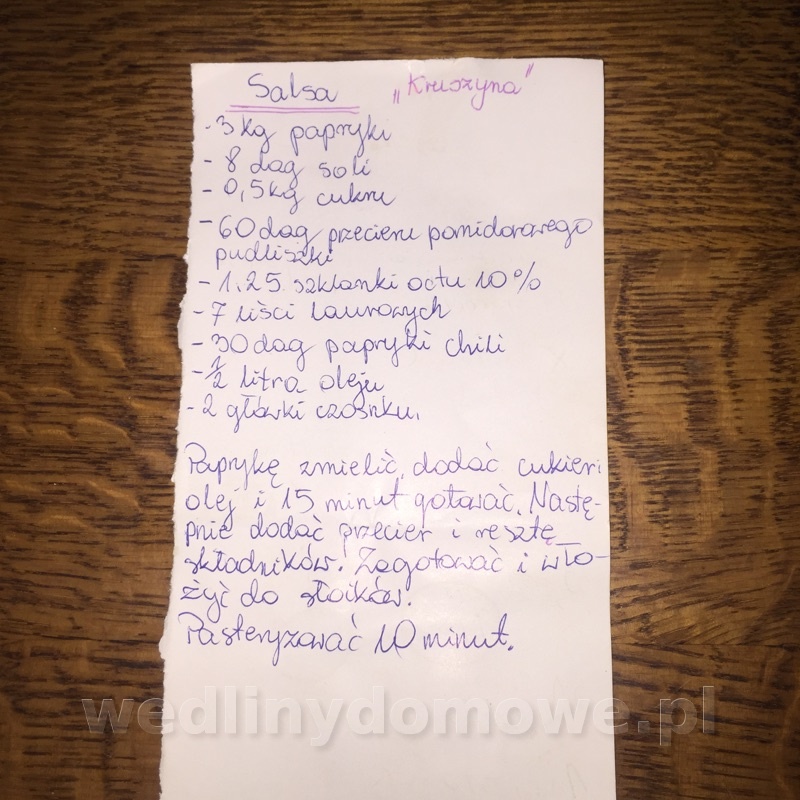 Salsa „Kruszyna"
- 3 kg papryki
- 8 dag soli
- 0,5kg cukru
- 60 dag przecieru pomidorowego
pudliszki
- 1,25 szklanki octu 10%
- 7 liści laurowych
- 30 dag papryki chili
- 1/2 litra oleju
- 2 główki czosnku.
Paprykę zmielić, dodać cukier i
olej i 15 minut gotować. Nastę-
pnie dodać przecier i resztę
składników. Zagotować i wło-
żyć do słoików.
Pasteryzować 10 minut.
wedlinydomowe.pl